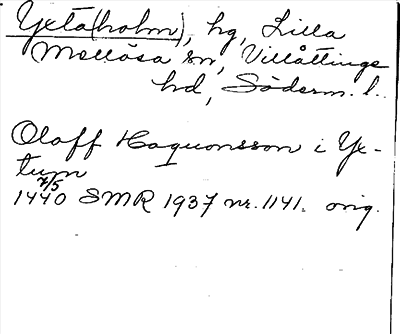 Yxta(holm), hg, Lilla
Mellösa sn, Villåttinge
hd, Söderm. l.
Olaff Haquonsson i Yx-
tum
7/5
1440 SMR 1937 nr. 1141. orig.